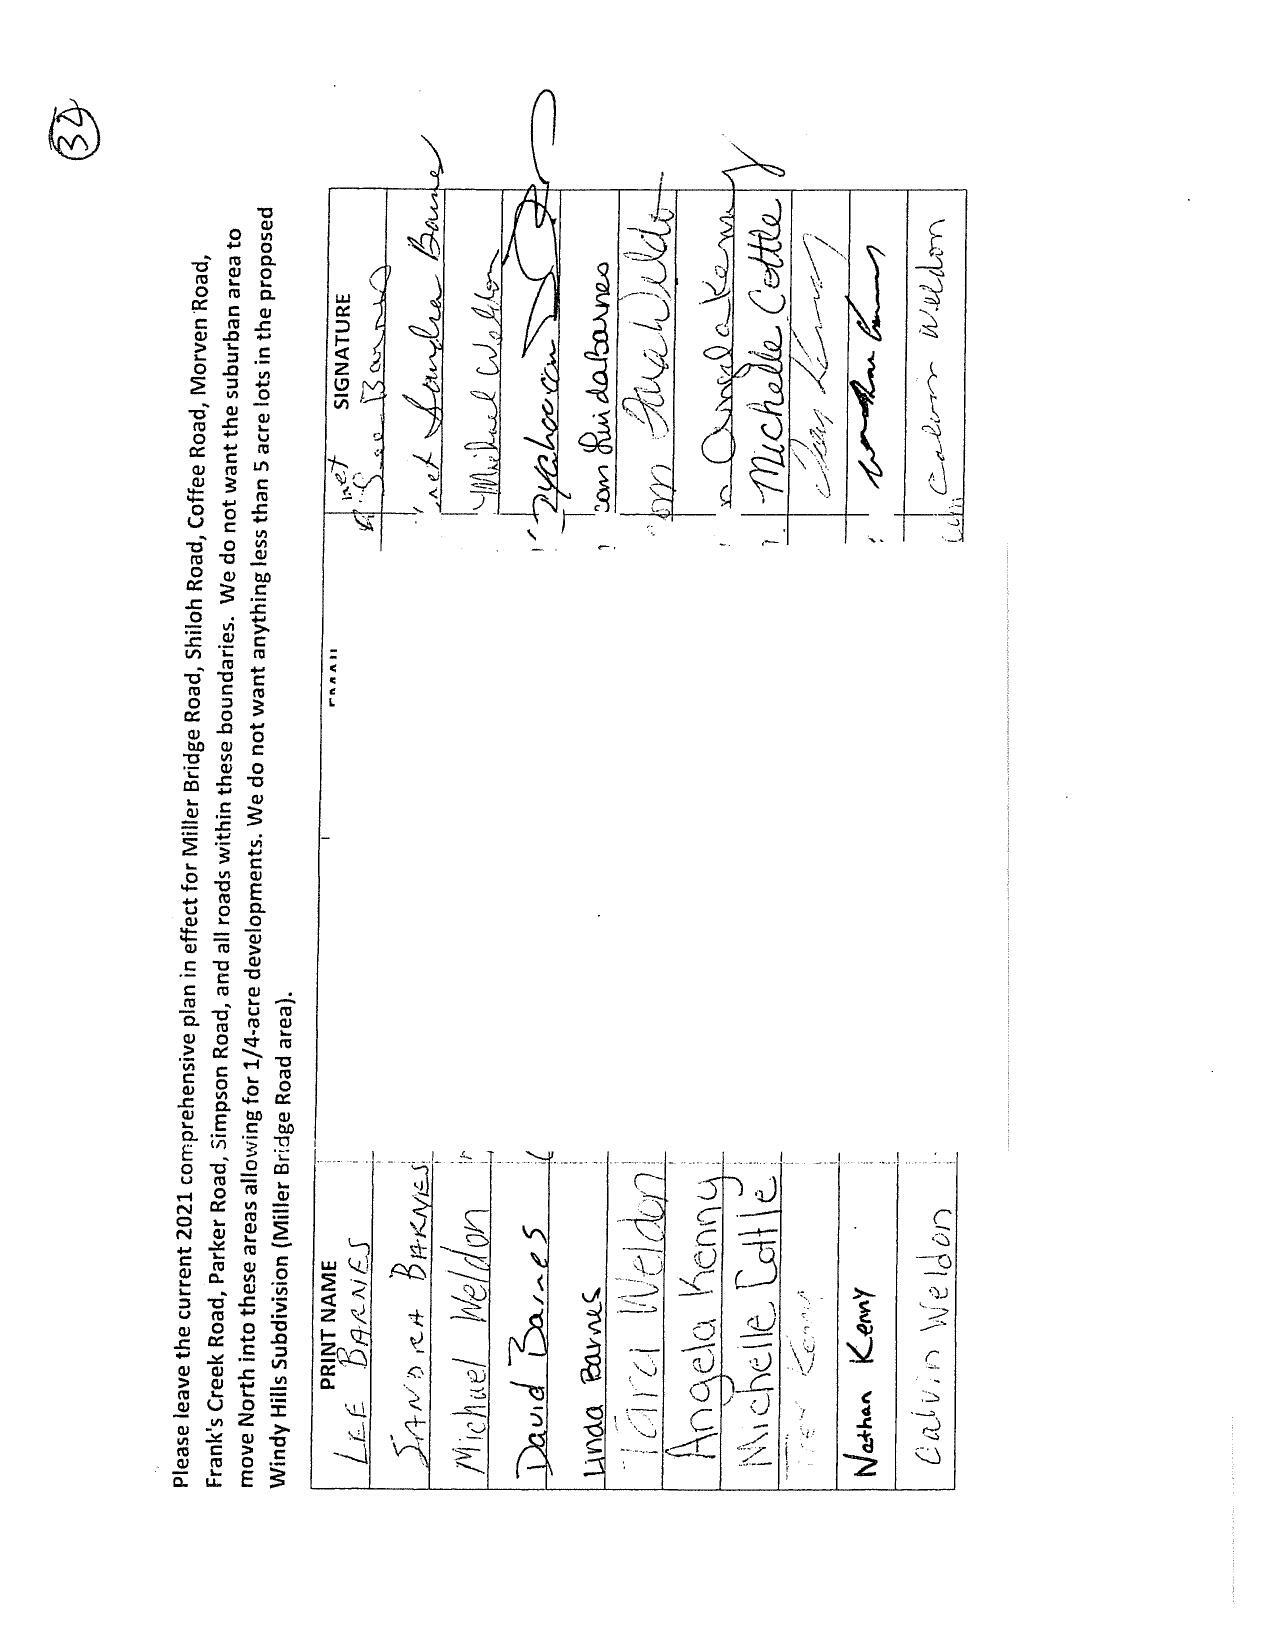 34
Please leave the current 2021 comprehensive plan in effect for Miller Bridge Road, Shiloh Road, Coffee Road, Morven Road,
Frank's Creek Road, Parker Road, Simpson Road, and all roads within these boundaries. We do not want the suburban area to
move North into these areas allowing for 1/4-acre developments. We do not want anything less than 5 acre lots in the proposed
Windy Hills Subdivision (Miller Bridge Road area).
PRINT NAME EMAIL SIGNATURE
LEE BARNES net Barnes
SANDRA BARNES net Sandra Barnes
Michael Weldon Michael Weldon
David Barnes yahoo.com
Linda Barnes com Linda Barnes
Tara Weldon om Tara Weldon
Angela Kenny Angela Kenny
Michelle Cottle Michelle Cottle
Kenny Kenny
Nathan Kenny
Calvin Weldon Calvin Weldon